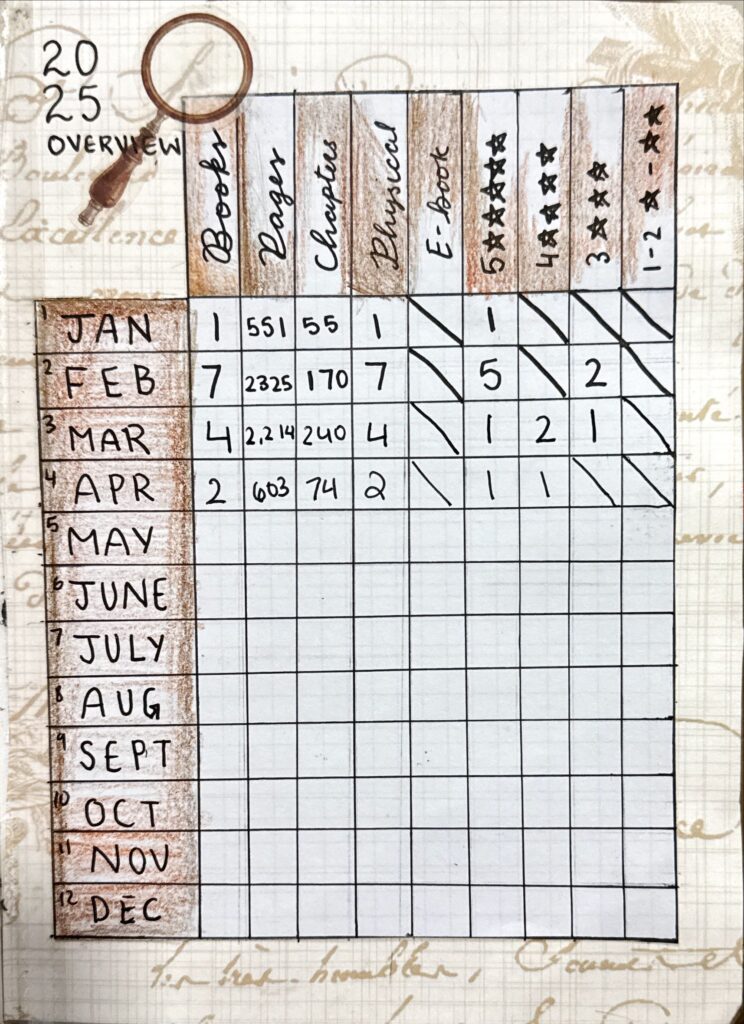 20
25
OVERVIEW
Books Pages Chapters Physical E-book 5☆☆☆☆☆ 4☆☆☆☆ 3☆☆☆ 1-2 ☆-☆☆
1 JAN 1 551 55 1 \ 1 \ \ \
2 FEB 7 2325 170 7 \ 5 \ 2 \
3 MAR 4 2,214 240 4 \ 1 2 1 \
4 APR 2 603 74 2 \ 1 1 \ \
5 MAY
6 JUNE
7 JULY
8 AUG
9 SEPT
10 OCT
11 NOV
12 DEC
très humbles,